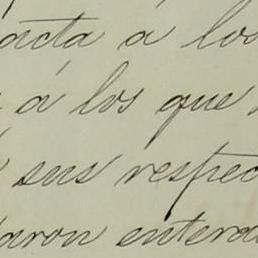 acta á los
á los que
sus respec
aron entera